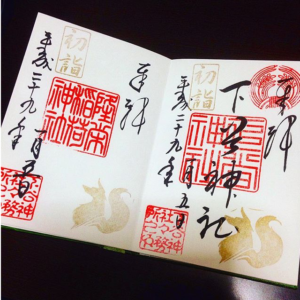 奉拝
下谷神社
初詣
平成二十九年一月五日
奉拝
隆栄稲荷神社
初詣
平成二十九年一月五日